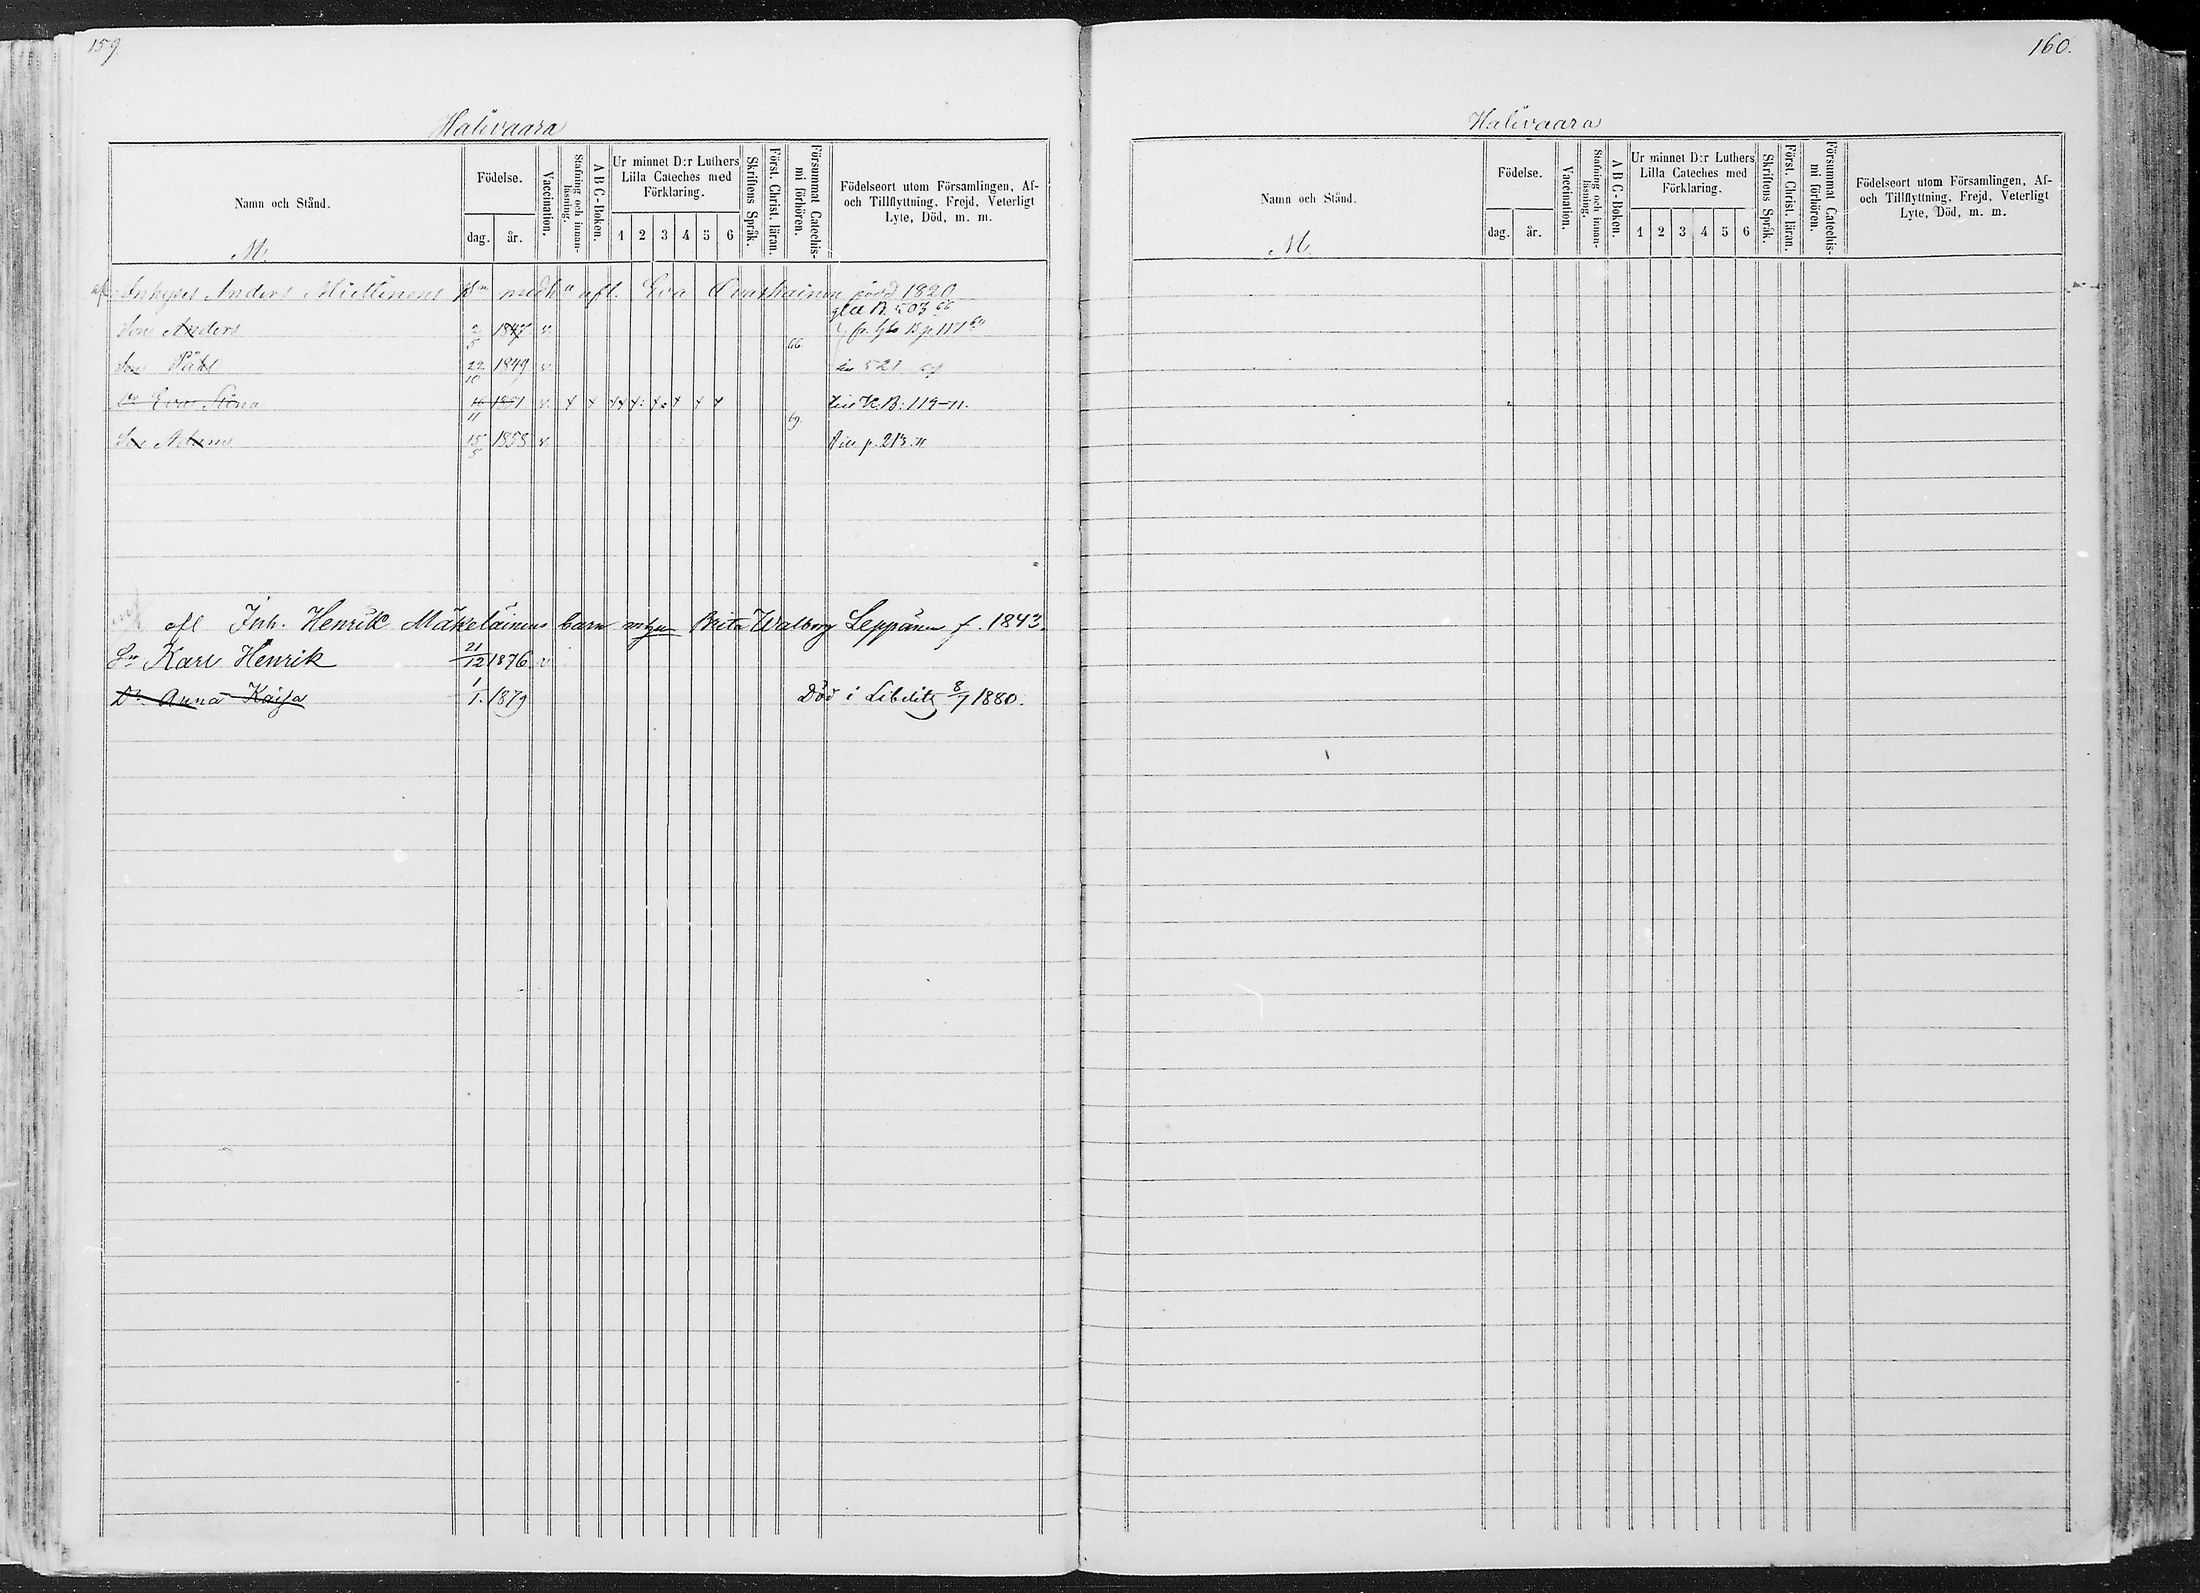 159.
Halivaara
Namn och Stånd.
M.
Födelse.
dag. år.
Vaccination.
Stafning och innanläsning.
A B C-Boken.
Ur minnet D:r Luthers Lilla Cateches med Förklaring.
1 2 3 4 5 6
Skriftens Språk.
Först. Christ. läran.
Försummat Catechismi förhören.
Födelseort utom Församlingen, Af- och Tillflyttning, Frejd, Veterligt Lyte, Död, m. m.
afl. Inhyses Anders Miettinens med afl. Eva 1820
503
Son Anders 2/5 1847 v. 117
66.
Son Påhl 22/10 1849 v. 521
Dr Eva Stina 16/11 1851 v. + + + + + + + + till K.B. 119
69.
Son Adam 15/5 1858 v. till p. 213
afl Inh. Henrik Mäkeläinens barn Brita Walborg Leppänen f. 1843.
Sn Karl Henrik 21/12 1876 v
Dr. Anna Kaisa 1/1. 1879 Död i Libelitz 8/7 1880.
160.
Halivaara
Namn och Stånd.
M.
Födelse.
dag. år.
Vaccination.
Stafning och innanläsning.
A B C-Boken.
Ur minnet D:r Luthers Lilla Cateches med Förklaring.
1 2 3 4 5 6
Skriftens Språk.
Först. Christ. läran.
Försummat Catechismi förhören.
Födelseort utom Församlingen, Af- och Tillflyttning, Frejd, Veterligt Lyte, Död, m. m.